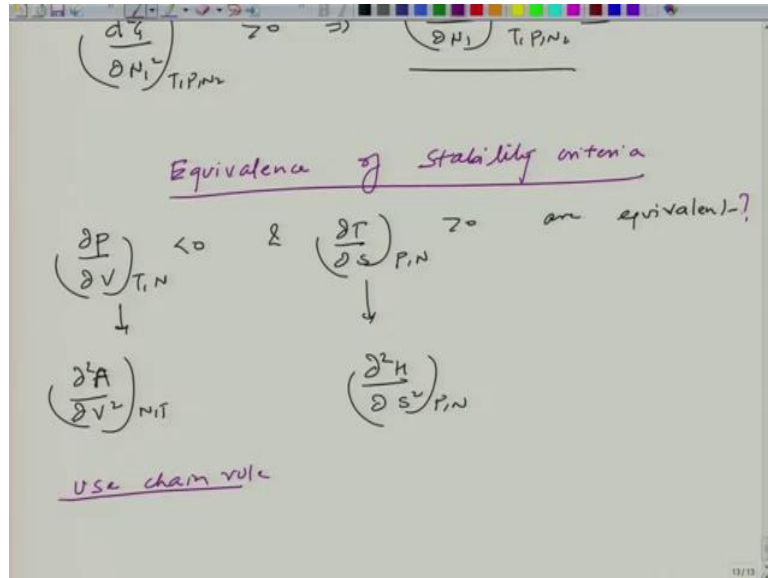 ∂N₁² T₁P₁N₂ >0 ⇒ ∂N₁ T₁P₁N₂
Equivalence of stability criteria
(∂P/∂V)T,N <0 & (∂T/∂S)P,N >0 are equivalent?
↓ ↓
(∂²A/∂V²)N,T (∂²H/∂S²)P,N
Use chain rule
13/13